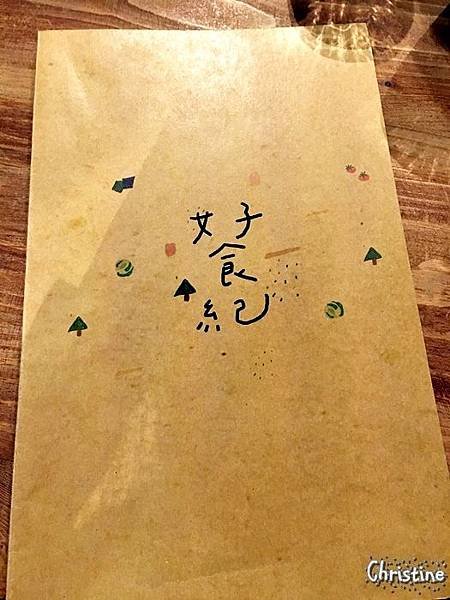 好
食
紀
Christine